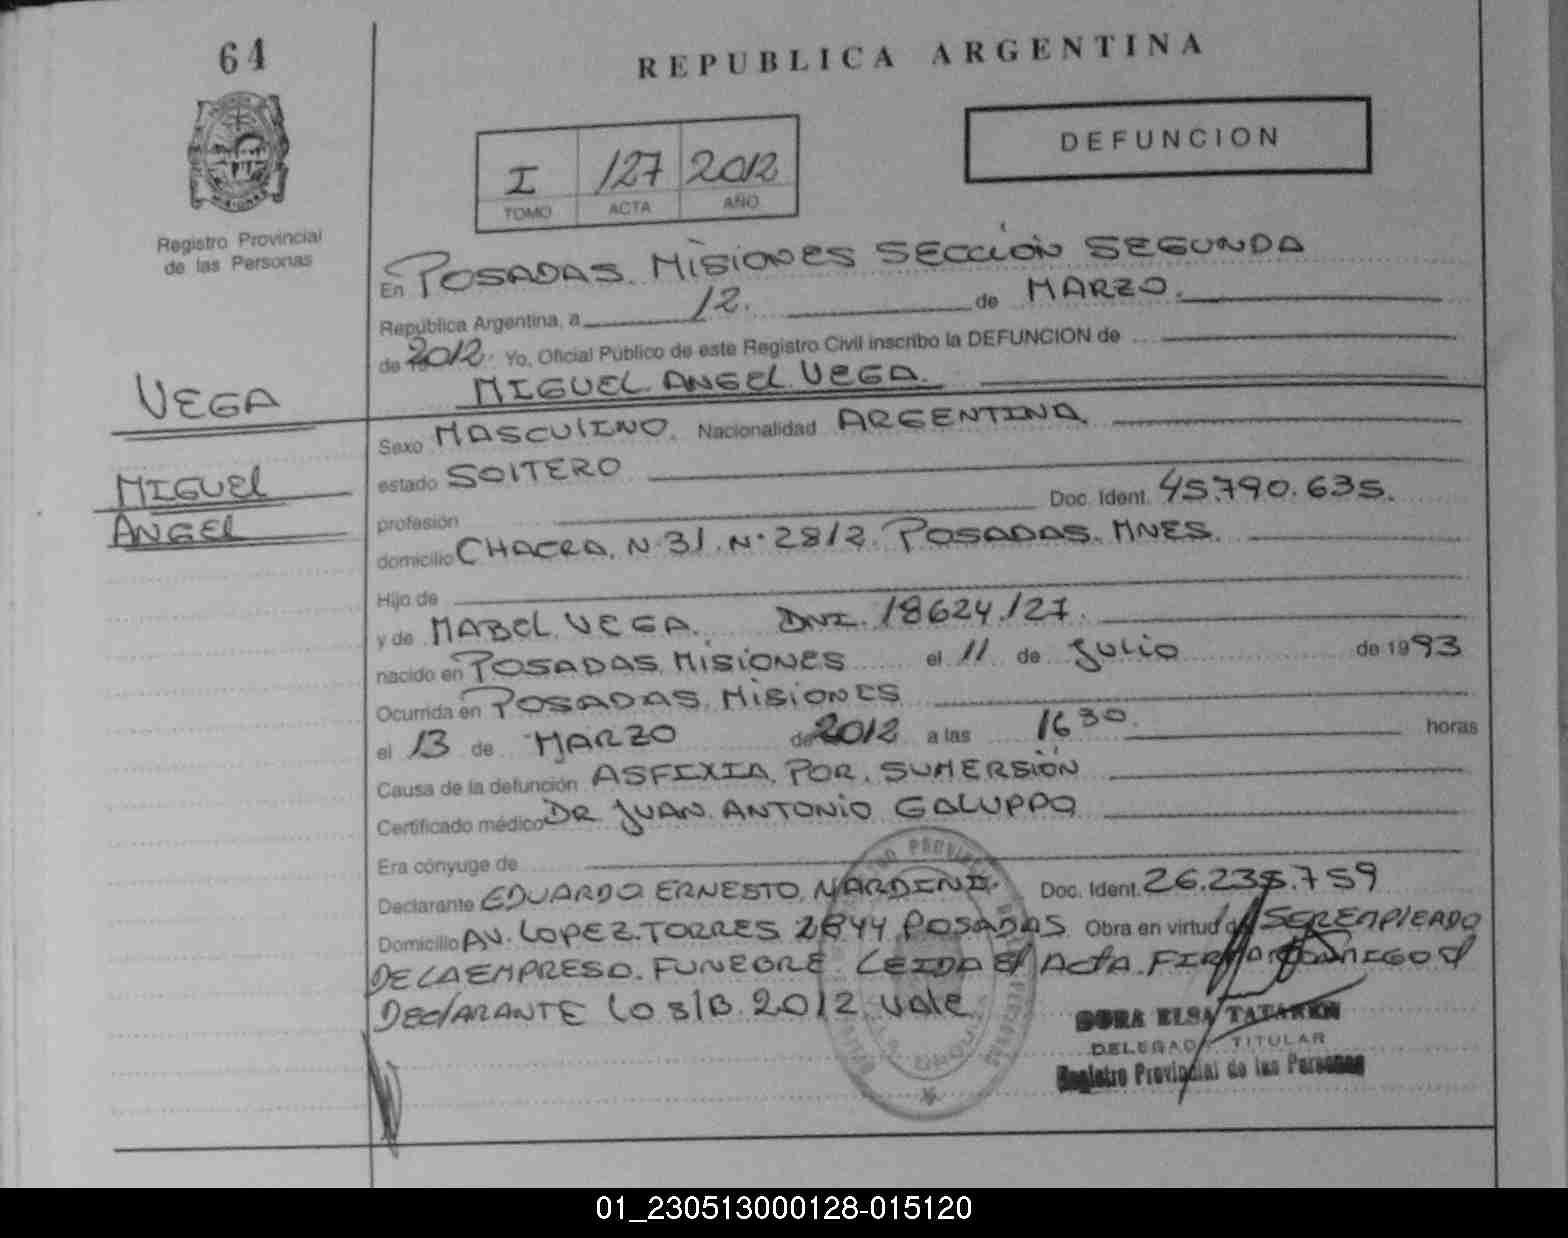 64
REPUBLICA ARGENTINA
I 127 2012
TOMO ACTA AÑO
DEFUNCION
Registro Provincial
de las Personas
En POSADAS. MISIONES SECCION SEGUNDA
República Argentina, a 12. de MARZO.
de 2012. Yo, Oficial Público de este Registro Civil inscribo la DEFUNCION de
MIGUEL ANGEL VEGA.
VEGA
MIGUEL
ANGEL
Sexo MASCULINO. Nacionalidad ARGENTINA
estado SOLTERO
profesión Doc. Ident. 45.790.635.
domicilio CHACRA. N.31. N.2812. POSADAS. MNES.
Hijo de
y de MABEL VEGA. DNI. 18624.127.
nacido en POSADAS. MISIONES el 11 de Julio de 1993
Ocurrida en POSADAS. MISIONES
el 13 de MARZO de 2012 a las 16 30. horas
Causa de la defunción ASFIXIA. POR. SUMERSIÓN
Certificado médico DR JUAN. ANTONIO GALUPPO
Era cónyuge de
Declarante EDUARDO ERNESTO. NARDINI. Doc. Ident. 26.235.759
Domicilio AV. LOPEZ. TORRES 2844 POSADAS Obra en virtud SER EMPLEADO
DE LA EMPRESA. FUNEBRE. LEIDA el ActA. FIRMA CONMIGO el
DEclARANTE lo s/B. 2012. vale
DORA ELSA
DELEGADA TITULAR
Registro Provincial de las Personas
01_230513000128-015120